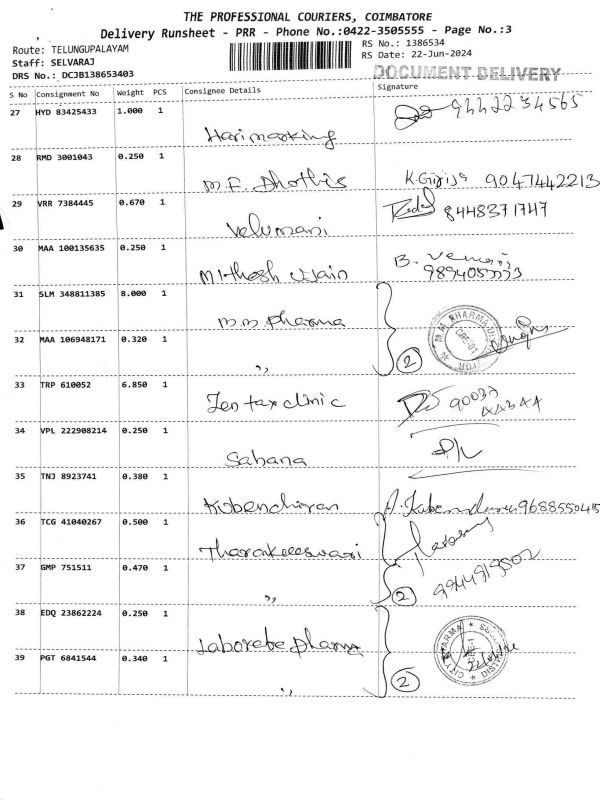 THE PROFESSIONAL COURIERS, COIMBATORE
Delivery Runsheet - PRR - Phone No.:0422-3505555 - Page No.:3
Route: TELUNGUPALAYAM
RS No.: 1386534
Staff: SELVARAJ
RS Date: 22-Jun-2024
DRS No.: DCJB138653403
DOCUMENT DELIVERY
S No Consignment No Weight PCS Consignee Details Signature
27 HYD 83425433 1.000 1
Harimarking
28 RMD 3001043 0.250 1
M.F. Dhothis K. Girija 9047442213
29 VRR 7384445 0.670 1
Velumani 8448371747
30 MAA 100135635 0.250 1
Mithosh Jain B.
31 SLM 348811385 8.000 1
M.M. Pharma
32 MAA 106948171 0.320 1
,, 2
M.M. PHARMA
33 TRP 610052 6.850 1
Zen tax clinic 90037
44344
34 VPL 222908214 0.250 1
Sahana
35 TNJ 8923741 0.380 1
Kubenchiran
36 TCG 41040267 0.500 1
Tharakeeswari
37 GMP 751511 0.470 1
,, 2 9944919502
38 EDQ 23862224 0.250 1
Laborate pharma
CITY PHARMA
39 PGT 6841544 0.340 1
,, 2